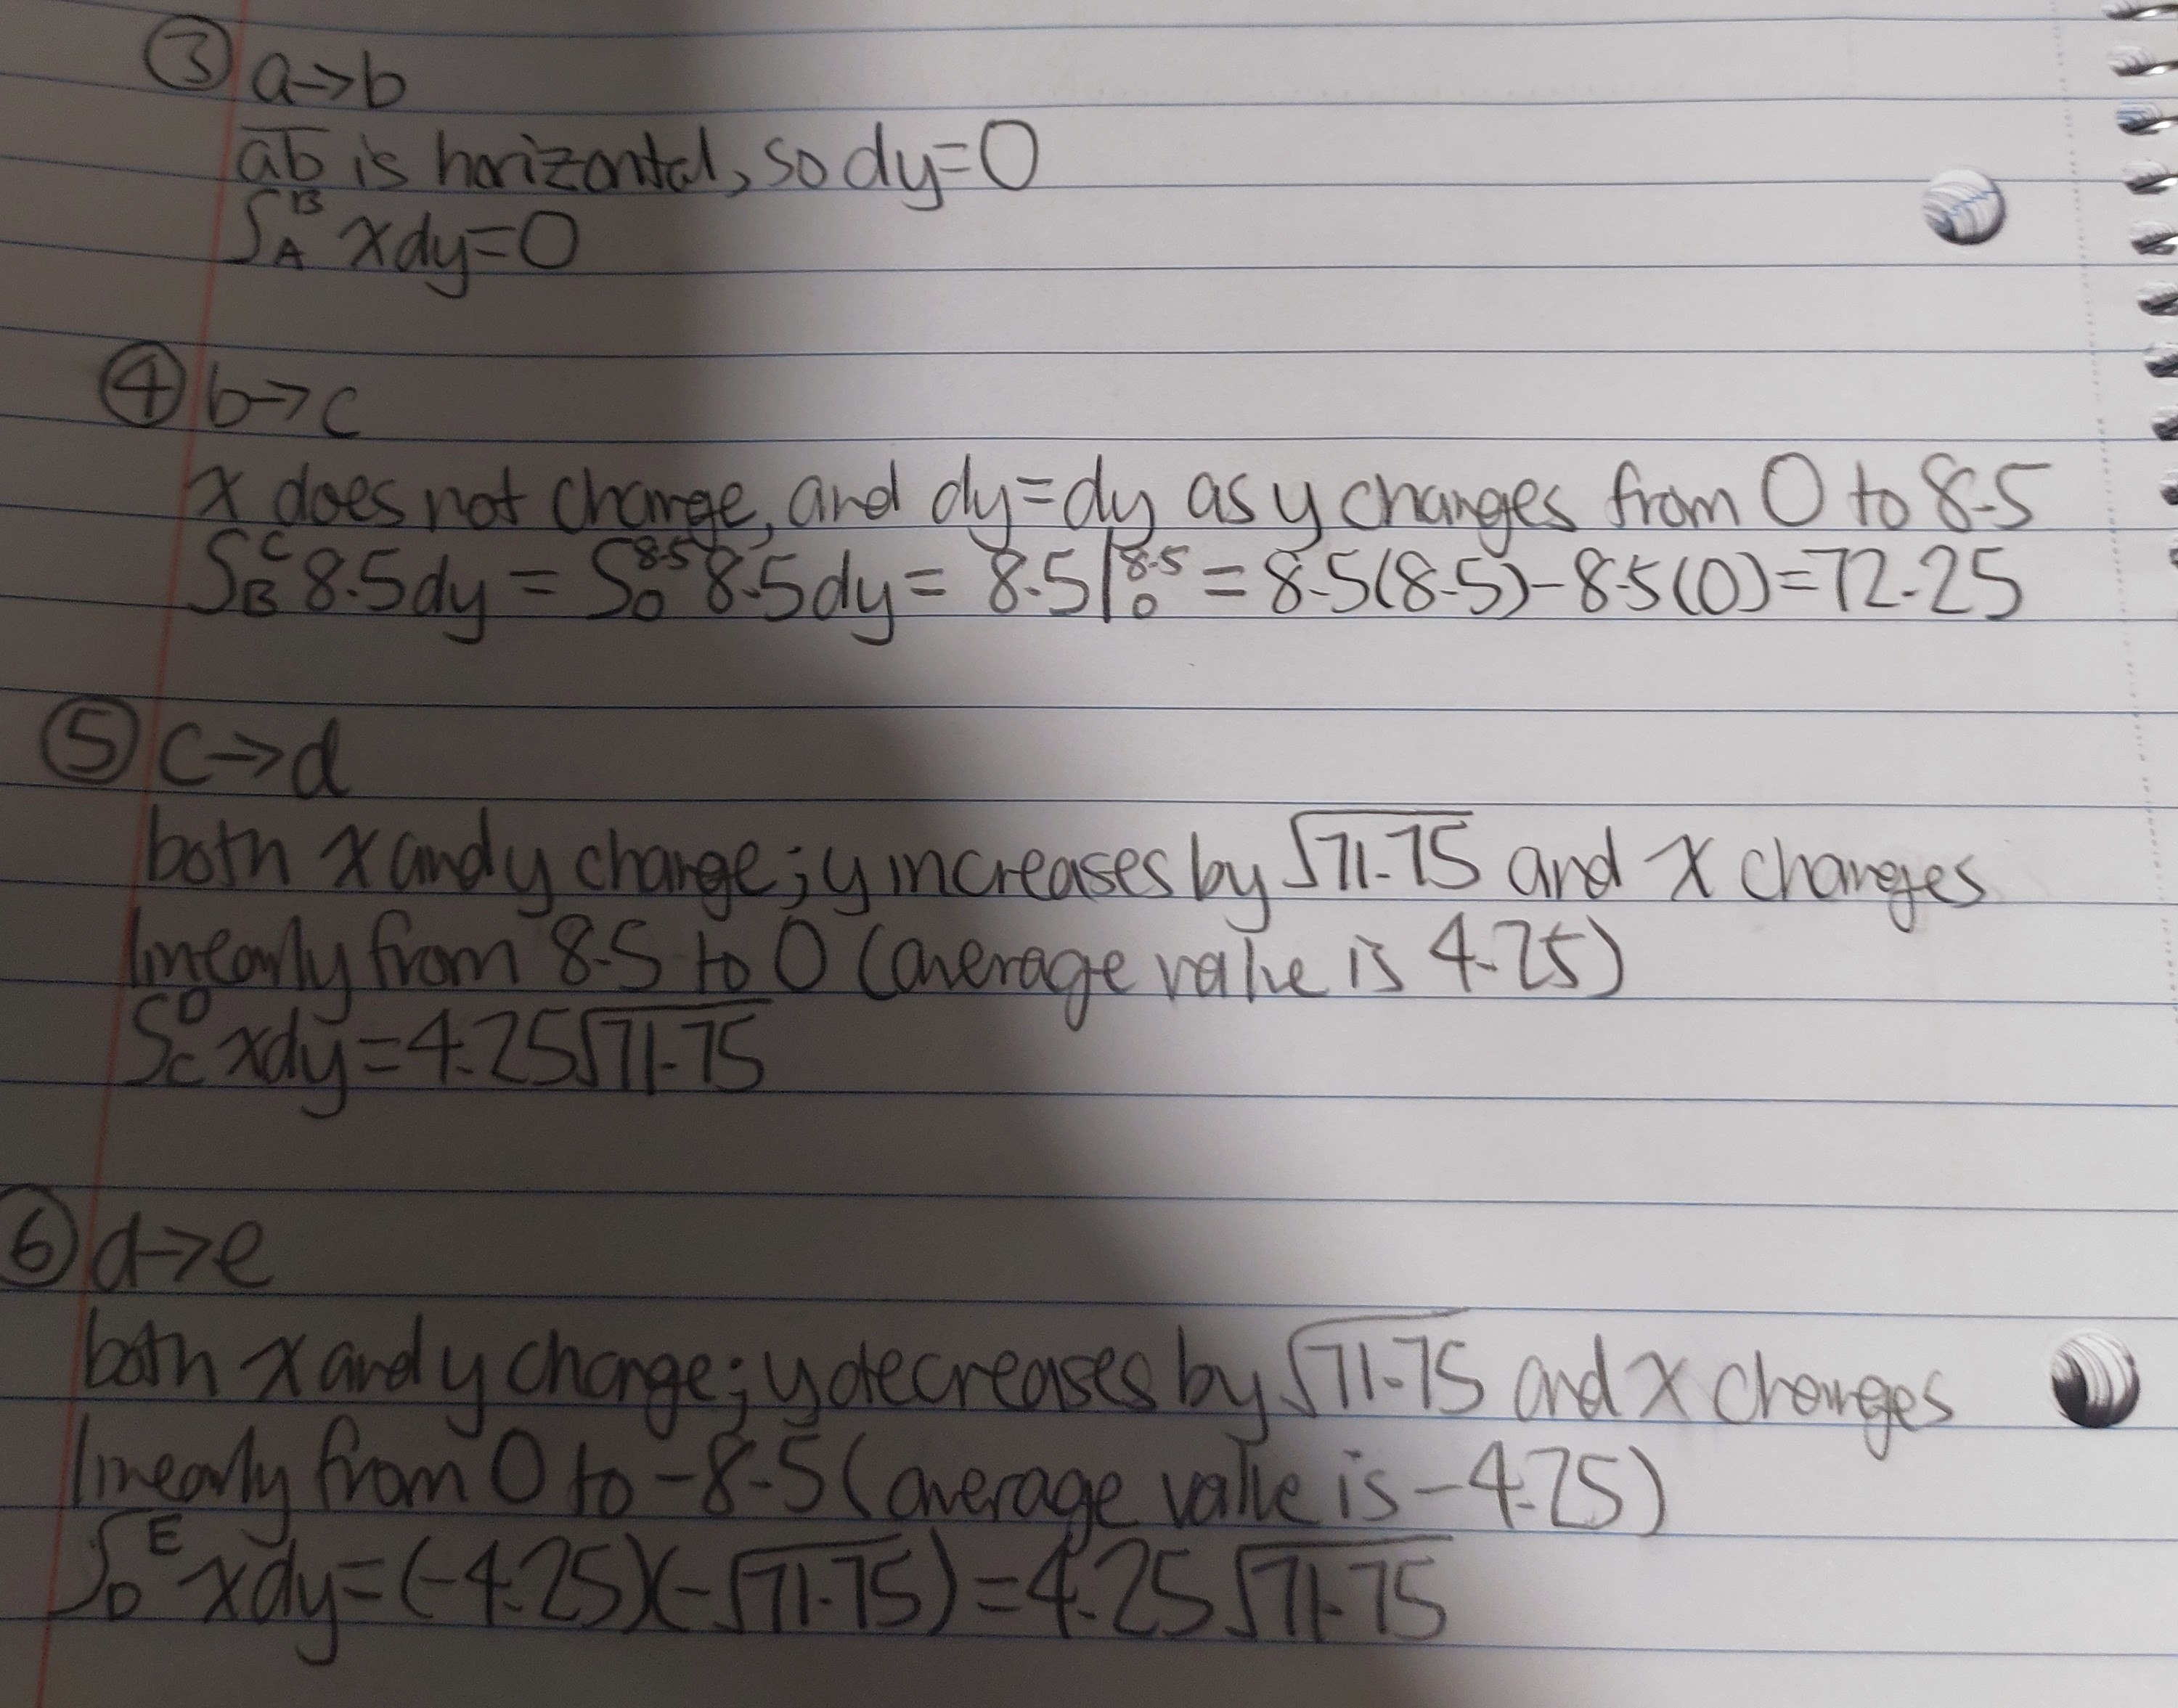 ③ a→b
ab is horizontal, so dy=0
∫_A^B xdy=0
④ b→c
x does not change, and dy=dy as y changes from 0 to 8.5
∫_B^C 8.5dy = ∫_0^8.5 8.5dy = 8.5|_0^8.5 = 8.5(8.5)-8.5(0)=72.25
⑤ c→d
both x and y change; y increases by √71.75 and x changes
linearly from 8.5 to 0 (average value is 4.25)
∫_C^D xdy=4.25√71.75
⑥ d→e
both x and y change; y decreases by √71.75 and x changes
linearly from 0 to -8.5 (average value is -4.25)
∫_D^E xdy=(-4.25)(-√71.75)=4.25√71.75